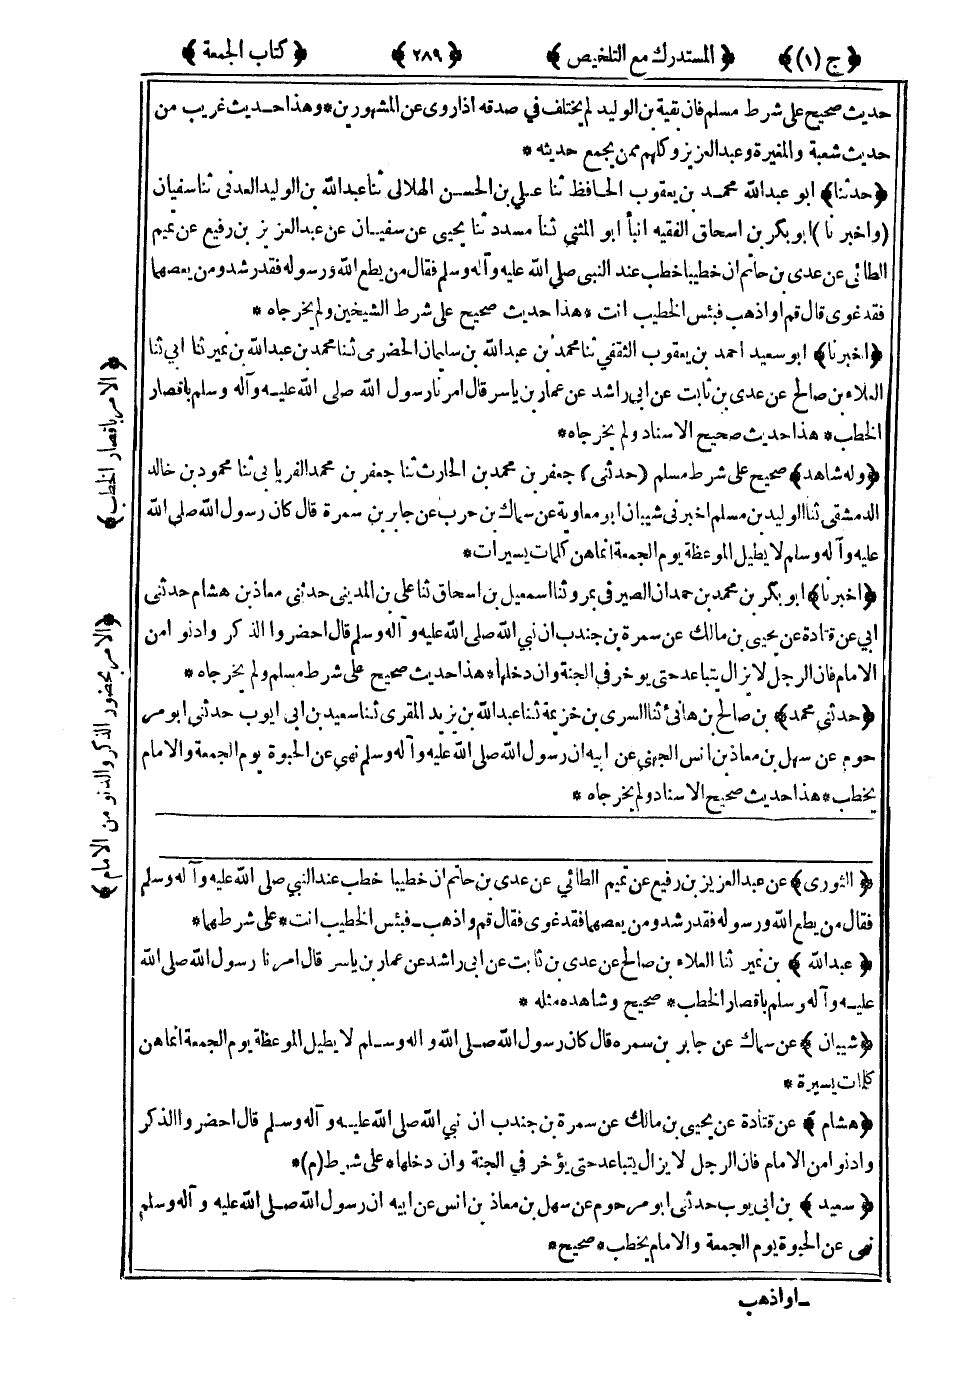 ﴿ ج (١) ﴾ ﴿ المستدرك مع التلخيص ﴾ ﴿ ٢٨٩ ﴾ ﴿ كتاب الجمعة ﴾
حديث صحيح على شرط مسلم فان بقية بن الوليد لم يختلف في صدقه اذا روى عن المشهورين * وهذا حديث غريب من
حديث شعبة والمغيرة وعبد العزيز وكلهم ممن يجمع حديثه *
﴿حدثنا﴾ ابو عبدالله محمد بن يعقوب الحافظ ثنا على بن الحسن الهلالى ثنا عبدالله بن الوليد العدنى ثنا سفيان
(واخبرنا) ابو بكر بن اسحاق الفقيه انبأ ابو المثنى ثنا مسدد ثنا يحيى عن سفيان عن عبد العزيز بن رفيع عن تميم
الطائى عن عدى بن حاتم ان خطيبا خطب عند النبى صلى الله عليه وآله وسلم فقال من يطع الله ورسوله فقد رشد ومن يعصهما
فقد غوى قال قم او اذهب فبئس الخطيب انت * هذا حديث صحيح على شرط الشيخين ولم يخرجاه *
﴿اخبرنا﴾ ابو سعيد احمد بن يعقوب الثقفي ثنا محمد بن عبدالله بن سليمان الحضرمى ثنا محمد بن عبدالله بن نمير ثنا ابي ثنا
العلاء بن صالح عن عدى بن ثابت عن ابى راشد عن عمار بن ياسر قال امرنا رسول الله صلى الله عليه وآله وسلم باقصار
الخطب * هذا حديث صحيح الاسناد ولم يخرجاه *
﴿وله شاهد﴾ صحيح على شرط مسلم (حدثنى) جعفر بن محمد بن الحارث ثنا جعفر بن محمد الفريابى ثنا محمود بن خالد
الدمشقى ثنا الوليد بن مسلم اخبرنى شيبان ابو معاوية عن سماك بن حرب عن جابر بن سمرة قال كان رسول الله صلى الله
عليه وآله وسلم لا يطيل الموعظة يوم الجمعة انما هن كلمات يسيرات *
﴿اخبرنا﴾ ابو بكر بن محمد بن حمدان الصيرفى بمرو ثنا اسمعيل بن اسحاق ثنا على بن المدينى حدثنى معاذ بن هشام حدثنى
ابي عن قتادة عن يحيى بن مالك عن سمرة بن جندب ان نبي الله صلى الله عليه وآله وسلم قال احضروا الذكر وادنوا من
الامام فان الرجل لا يزال يتباعد حتى يوخر في الجنة وان دخلها * هذا حديث صحيح على شرط مسلم ولم يخرجاه *
﴿حدثنى محمد﴾ بن صالح بن هانئ ثنا السرى بن خزيمة ثنا عبدالله بن يزيد المقرى ثنا سعيد بن ابى ايوب حدثنى ابو مر
حوم عن سهل بن معاذ بن انس الجهني عن ابيه ان رسول الله صلى الله عليه وآله وسلم نهي عن الحبوة يوم الجمعة والامام
يخطب * هذا حديث صحيح الاسناد ولم يخرجاه *
﴿الامر باقصار الخطب﴾
﴿الامر بحضور الذكر والدنو من الامام﴾
﴿ الثورى ﴾ عن عبد العزيز بن رفيع عن تميم الطائي عن عدى بن حاتم ان خطيبا خطب عند النبي صلى الله عليه وآله وسلم
فقال من يطع الله ورسوله فقد رشد ومن يعصهما فقد غوى فقال قم واذهب ـ فبئس الخطيب انت * على شرطهما *
﴿ عبدالله ﴾ بن نمير ثنا العلاء بن صالح عن عدى بن ثابت عن ابى راشد عن عمار بن ياسر قال امرنا رسول الله صلى الله
عليه وآله وسلم باقصار الخطب * صحيح وشاهده مثله *
﴿شيبان ﴾ عن سماك عن جابر بن سمره قال كان رسول الله صلى الله و اله وسلم لا يطيل الموعظة يوم الجمعة انما هن
كلمات يسيرة *
﴿هشام ﴾ عن قتادة عن يحيى بن مالك عن سمرة بن جندب ان نبي الله صلى الله عليه وآله وسلم قال احضروا الذكر
وادنوا من الامام فان الرجل لا يزال يتباعد حتى يؤخر في الجنة وان دخلها * على شرط (م) *
﴿ سعيد ﴾ بن ابى يوب حدثنى ابو مرحوم عن سهل بن معاذ بن انس عن ابيه ان رسول الله صلى الله عليه وآله وسلم
نهى عن الحبوة يوم الجمعة والامام يخطب * صحيح *
ـ او اذهب